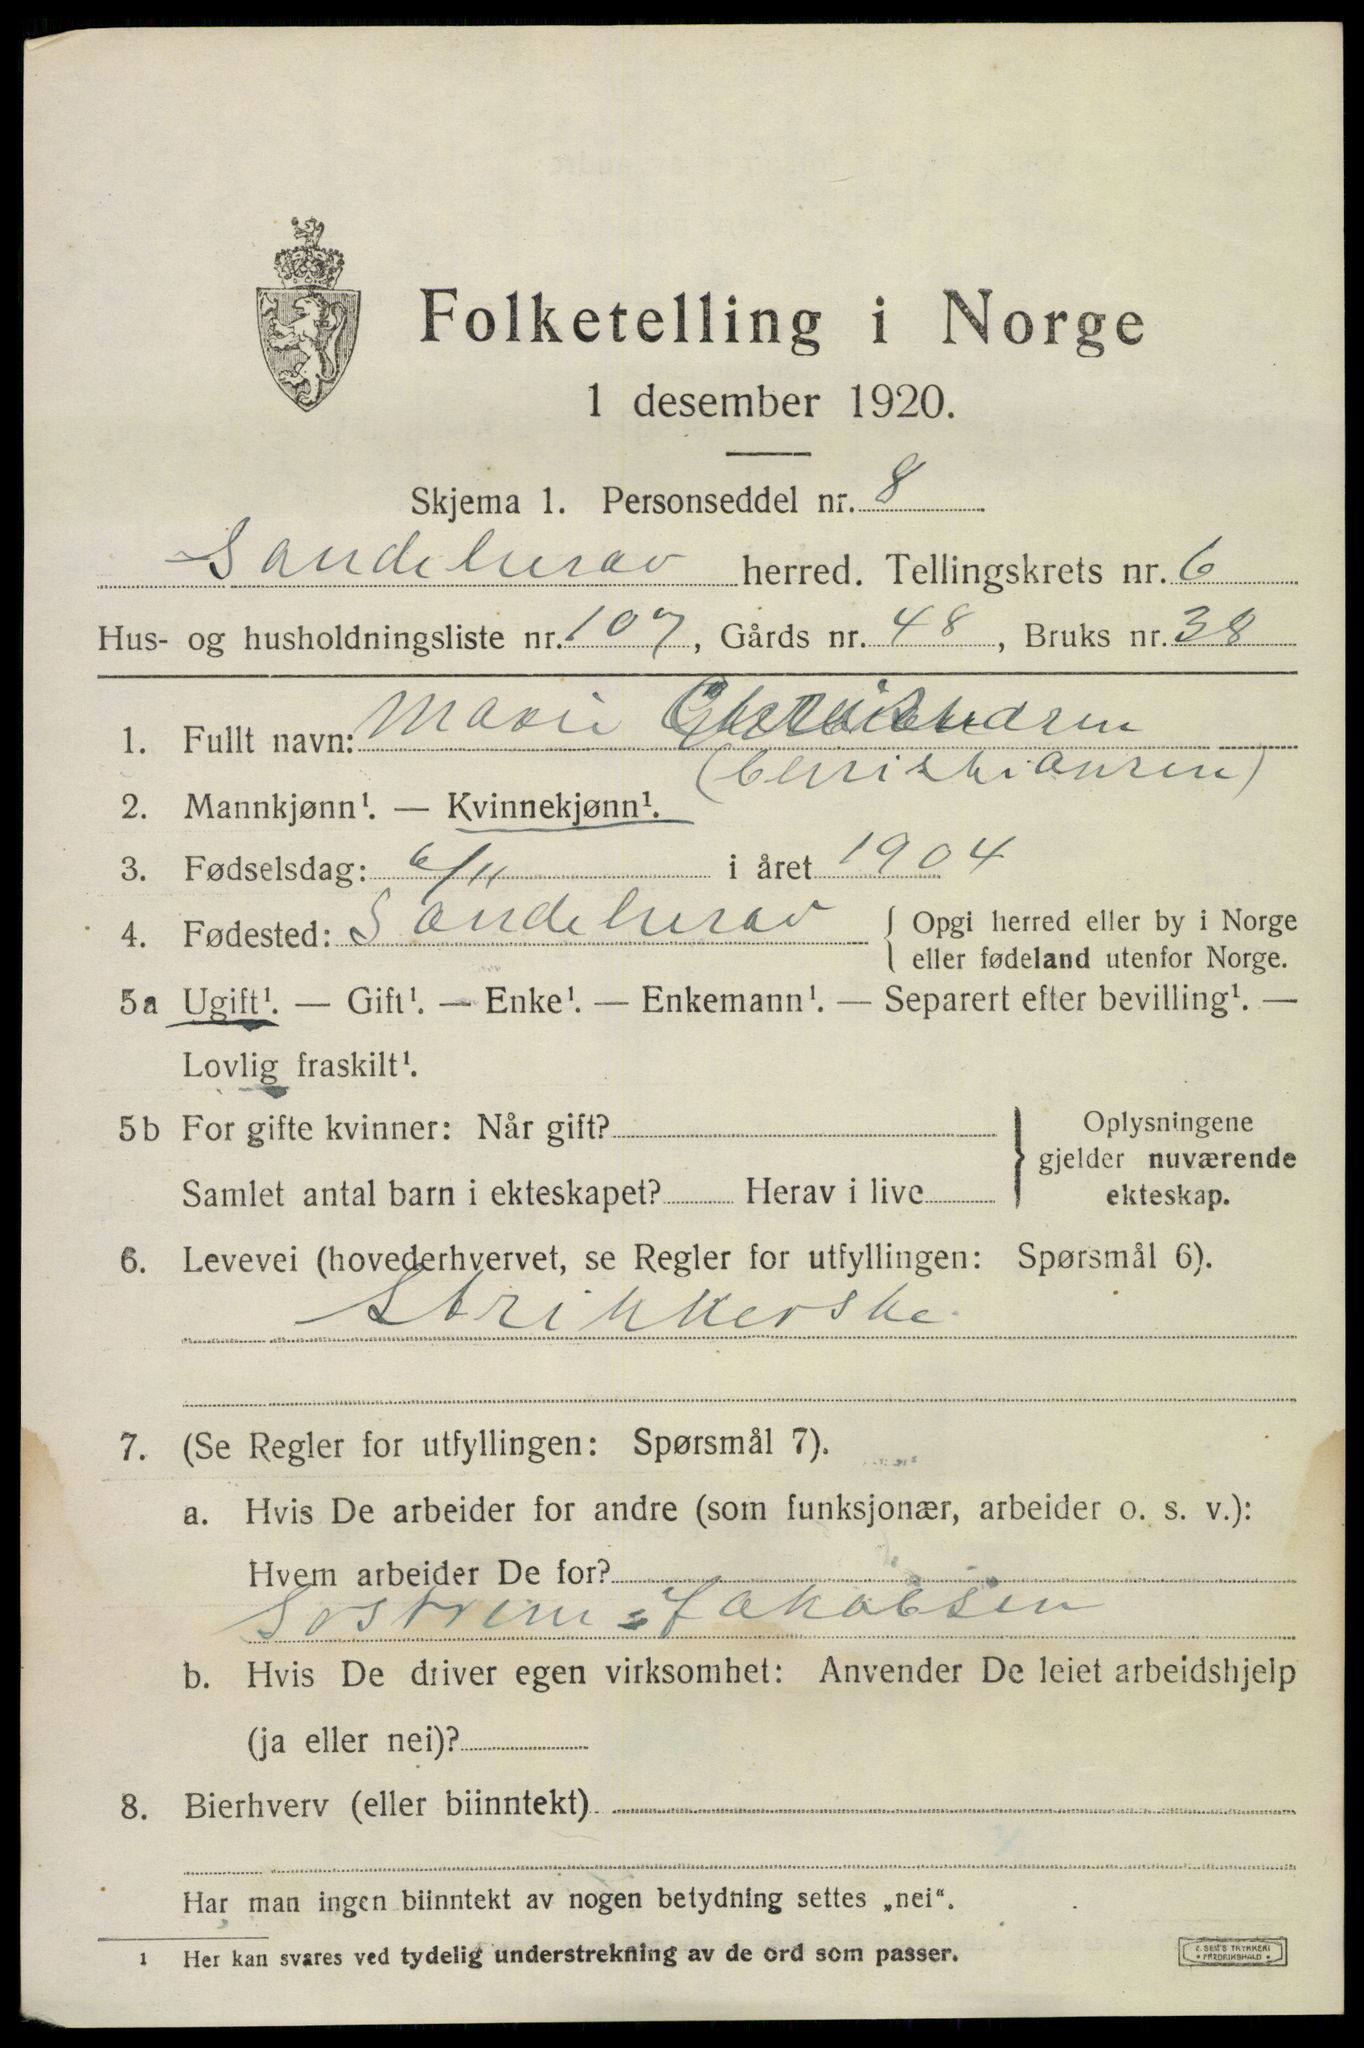 Folketelling i Norge
1 desember 1920.
Skjema 1. Personseddel nr. 8
Sandeherav herred. Tellingskrets nr. 6
Hus- og husholdningsliste nr. 107, Gårds nr. 48, Bruks nr. 38
1. Fullt navn: Marie
(Christiansen)
2. Mannkjønn¹. — Kvinnekjønn¹.
3. Fødselsdag: 6/11 i året 1904
4. Fødested: Sandeherav { Opgi herred eller by i Norge
eller fødeland utenfor Norge.
5a Ugift¹. — Gift¹. — Enke¹. — Enkemann¹. — Separert efter bevilling¹. —
Lovlig fraskilt¹.
5b For gifte kvinner: Når gift? } Oplysningene
gjelder nuværende
Samlet antal barn i ekteskapet? Herav i live ekteskap.
6. Levevei (hovederhvervet, se Regler for utfyllingen: Spørsmål 6).
Strikkerske
7. (Se Regler for utfyllingen: Spørsmål 7).
a. Hvis De arbeider for andre (som funksjonær, arbeider o. s. v.):
Hvem arbeider De for?
Jakobsen
b. Hvis De driver egen virksomhet: Anvender De leiet arbeidshjelp
(ja eller nei)?
8. Bierhverv (eller biinntekt)
Har man ingen biinntekt av nogen betydning settes „nei“.
1 Her kan svares ved tydelig understrekning av de ord som passer.
E. SEM'S TRYKKERI
• FREDRIKSHALD •